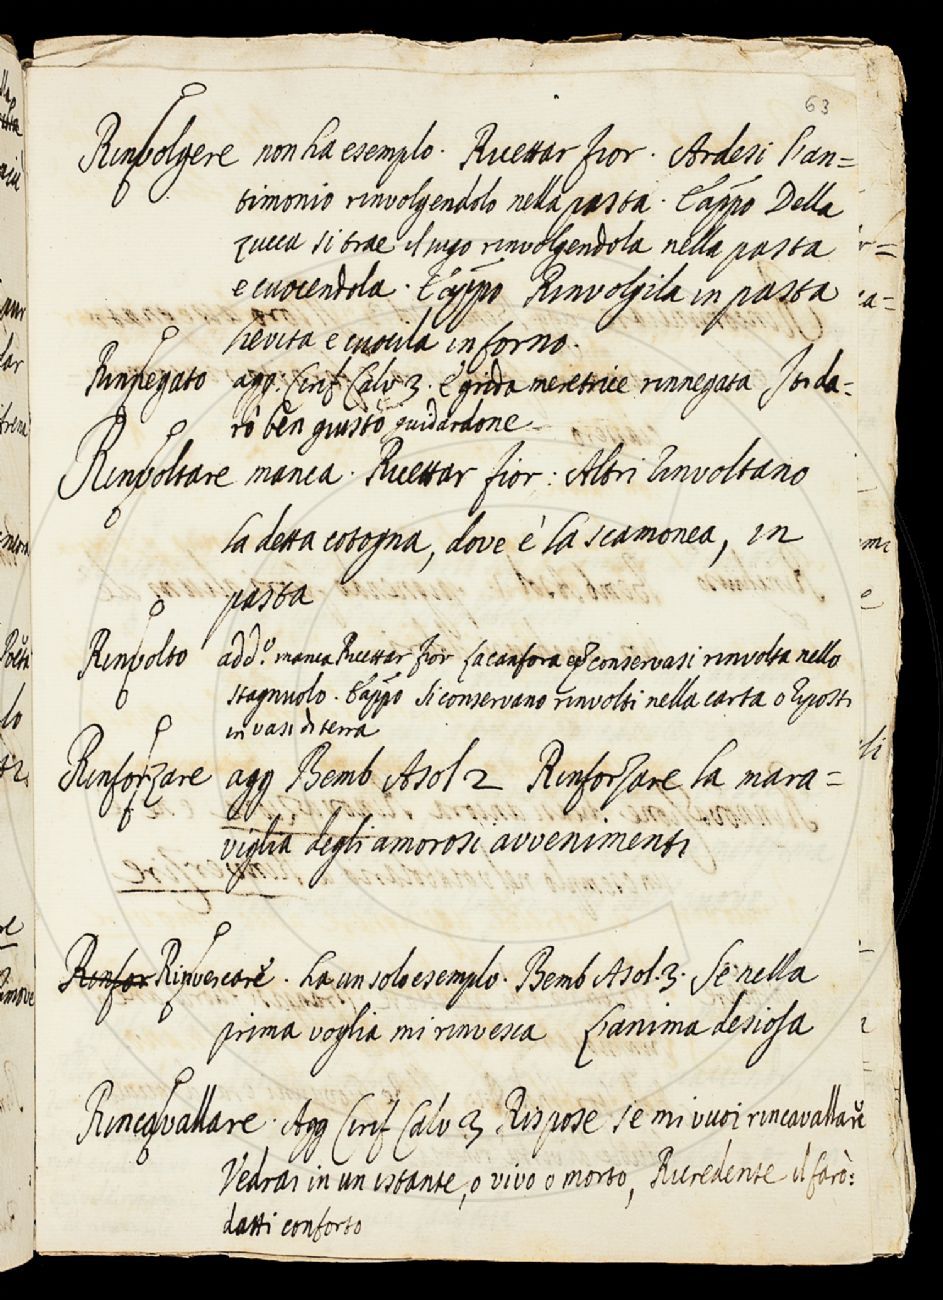 63
Rinvolgere non ha esempio. Ricettar fior. Ardesi l'an=
timonio rinvolgendolo nella pasta. E appo Della
zucca si trae il sugo rinvolgendola nella pasta
e cuocendola. E appo Rinvolgila in pasta
lievita e cuocila in forno.
Rinnegato agg. Cirif Calv 3. E grida meretrice rinnegata Io ti da=
rò ben giusto guidardone
Rinvoltare manca. Ricettar fior: Altri rinvoltano
la detta cotogna, dove è la scamonea, in
pasta
Rinvolto add.º manca Ricettar fior La canfora conservasi rinvolta nello
stagnuolo. E appo Si conservano rinvolti nella carta o riposti
in vasi di terra
Rinforzare agg Bemb Asol 2 Rinforzare la mara=
viglia degli amorosi avvenimenti
Rinfor Rinvescare. ha un solo esempio. Bemb Asol. 3. Se nella
prima voglia mi rinvesca L'anima desiosa
Rincavallare. Agg Cirif Calv 3 Rispose se mi vuoi rincavallare
Vedrai in un istante, o vivo o morto, Ricredente il farò:
datti conforto